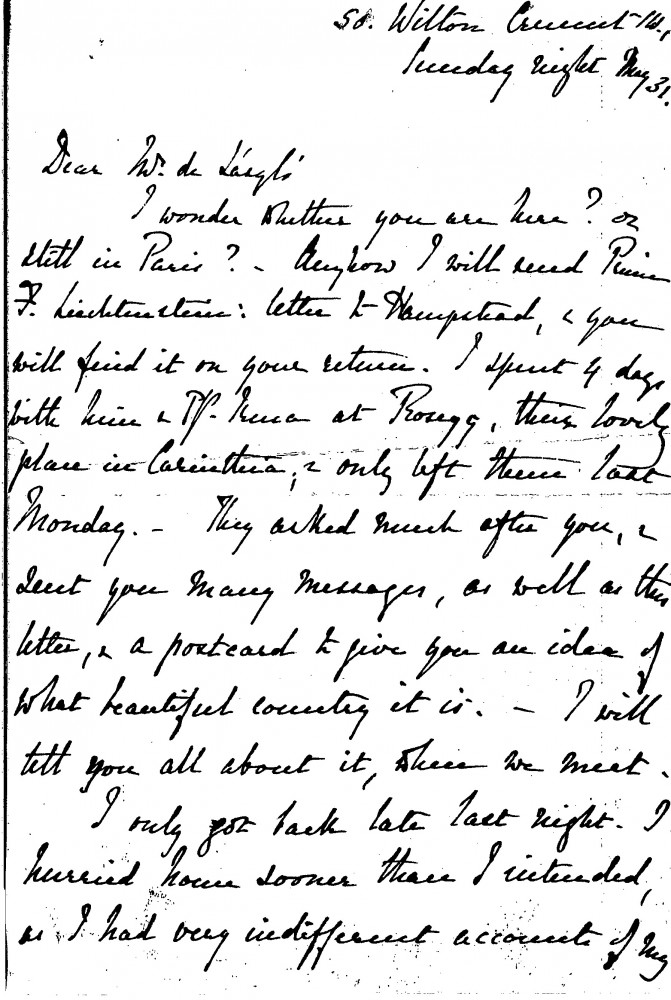 50. Wilton Crescent
Sunday night May 31.
Dear Mr. de László
I wonder whether you are here? or
still in Paris? - Anyhow I will send Prince
F. Liechtenstein's letter to Hampstead, & you
will find it on your return. I spent 4 days
with him & Pss. Elsa at Rosegg, their lovely
place in Carinthia, & only left them last
Monday. - They asked much after you, &
sent you many messages, as well as this
letter, & a postcard to give you an idea of
what beautiful country it is. - I will
tell you all about it, when we meet.
I only got back late last night. I
hurried home sooner than I intended,
as I had very indifferent accounts of my